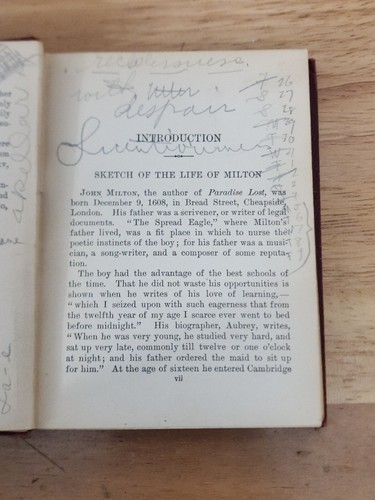 recklessness
with utter
despair
INTRODUCTION
Licentiousness
SKETCH OF THE LIFE OF MILTON
JOHN MILTON, the author of Paradise Lost, was
born December 9, 1608, in Bread Street, Cheapside,
London. His father was a scrivener, or writer of legal
documents. "The Spread Eagle," where Milton's
father lived, was a fit place in which to nurse the
poetic instincts of the boy; for his father was a musi-
cian, a song-writer, and a composer of some reputa-
tion.
The boy had the advantage of the best schools of
the time. That he did not waste his opportunities is
shown when he writes of his love of learning,—
"which I seized upon with such eagerness that from
the twelfth year of my age I scarce ever went to bed
before midnight." His biographer, Aubrey, writes,
"When he was very young, he studied very hard, and
sat up very late, commonly till twelve or one o'clock
at night; and his father ordered the maid to sit up
for him." At the age of sixteen he entered Cambridge
vii
26
27
28